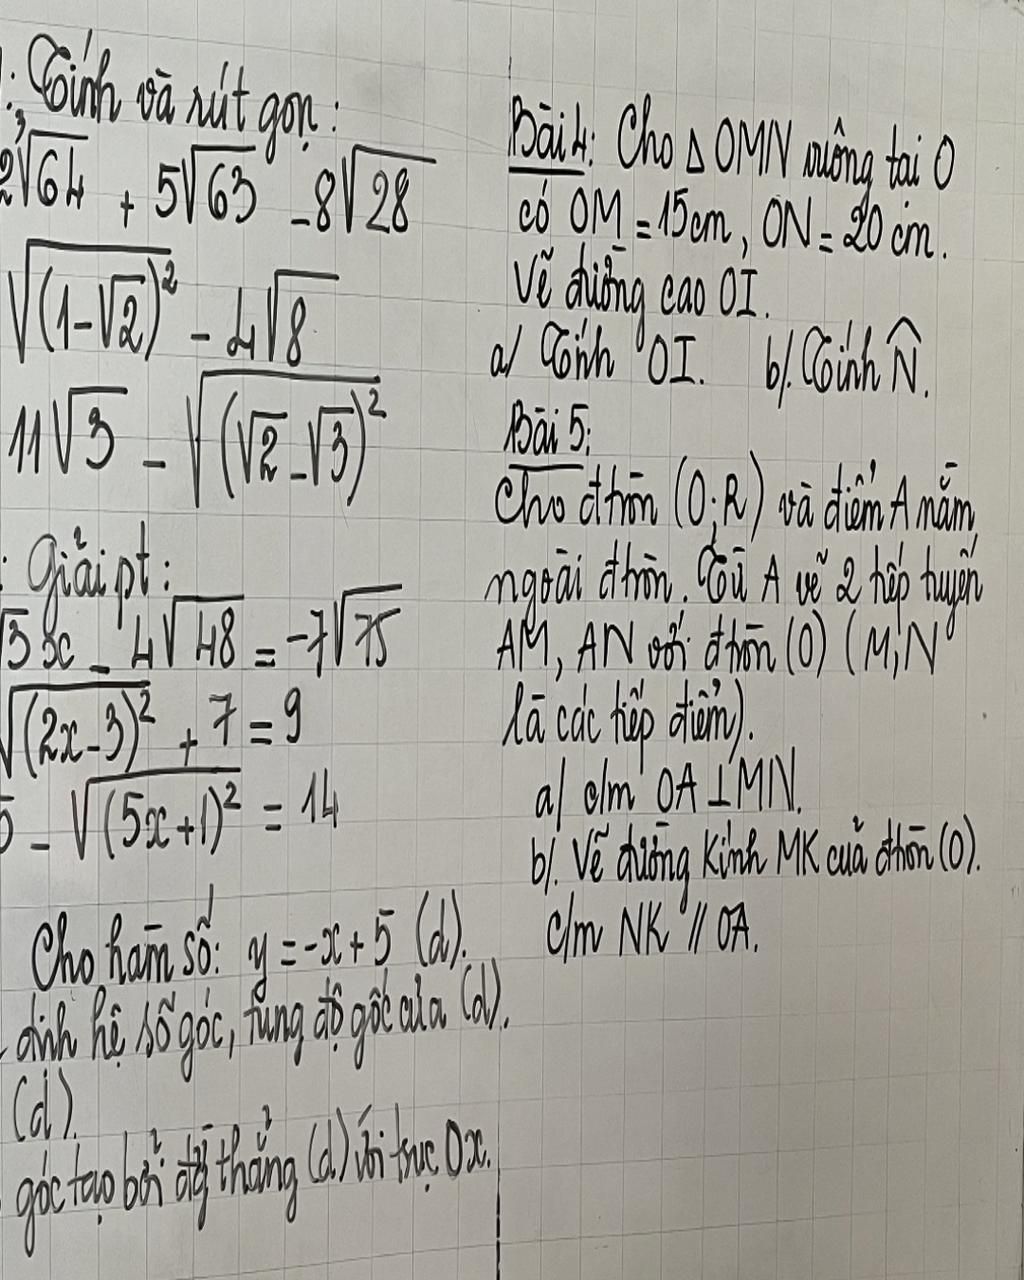 : Tính và rút gọn:
2³√64 + 5√63 - 8√28
√(1-√2)² - 4√8
11√3 - √(√2-√3)²
: Giải pt:
√3x - 4√48 = -7√75
√(2x-3)² + 7 = 9
- √(5x+1)² = 14
Cho hàm số: y = -x + 5 (d).
định hệ số góc, tung độ gốc của (d).
(d).
góc tạo bởi đg thẳng (d) với trục Ox.
Bài 4: Cho Δ OMN vuông tại O
có OM = 15cm, ON = 20 cm.
Vẽ đường cao OI.
a/ Tính OI. b/. Tính N̂.
Bài 5:
Cho đtròn (O;R) và điểm A nằm
ngoài đtròn. Từ A vẽ 2 tiếp tuyến
AM, AN với đtròn (O) (M,N
là các tiếp điểm).
a/ c/m OA ⊥ MN.
b/. Vẽ đường kính MK của đtròn (O).
c/m NK // OA.